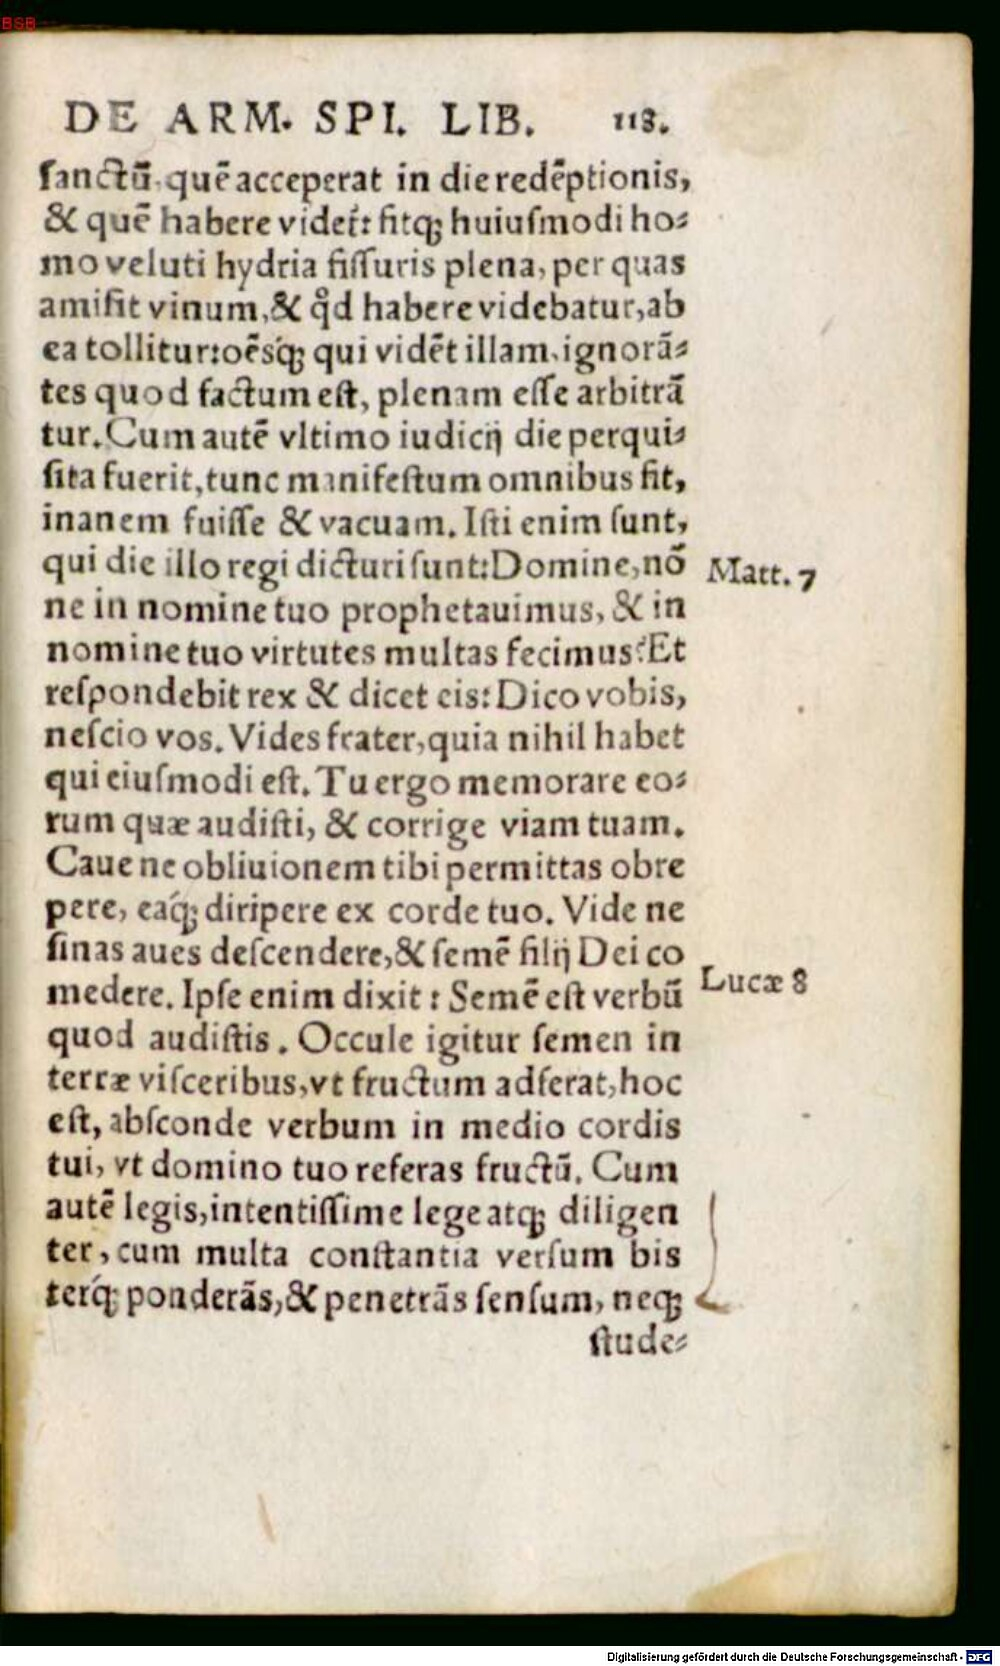 BSB
DE ARM. SPI. LIB. 118.
ſanctū, quē acceperat in die redēptionis,
& quē habere videt̃: fitq́; huiuſmodi ho-
mo veluti hydria fiſſuris plena, per quas
amiſit vinum, & qd̉ habere videbatur, ab
ea tollitur: oēsq́; qui vidēt illam, ignorā-
tes quod factum eſt, plenam eſſe arbitrā
tur. Cum autē vltimo iudicij die perqui-
ſita fuerit, tunc manifeſtum omnibus fit,
inanem fuiſſe & vacuam. Iſti enim ſunt,
qui die illo regi dicturi ſunt: Domine, nō
Matt. 7
ne in nomine tuo prophetauimus, & in
nomine tuo virtutes multas fecimus? Et
reſpondebit rex & dicet eis: Dico vobis,
neſcio vos. Vides frater, quia nihil habet
qui eiuſmodi eſt. Tu ergo memorare eo-
rum quæ audiſti, & corrige viam tuam.
Caue ne obliuionem tibi permittas obre
pere, eaq́; diripere ex corde tuo. Vide ne
ſinas aues deſcendere, & ſemē filij Dei co
medere. Ipſe enim dixit: Semē eſt verbū
Lucæ 8
quod audiſtis. Occule igitur ſemen in
terræ viſceribus, vt fructum adferat, hoc
eſt, abſconde verbum in medio cordis
tui, vt domino tuo referas fructū. Cum
autē legis, intentiſſime lege atq; diligen
ter, cum multa conſtantia verſum bis
terq́; ponderās, & penetrās ſenſum, neq;
ſtude-
Digitalisierung gefördert durch die Deutsche Forschungsgemeinschaft - DFG